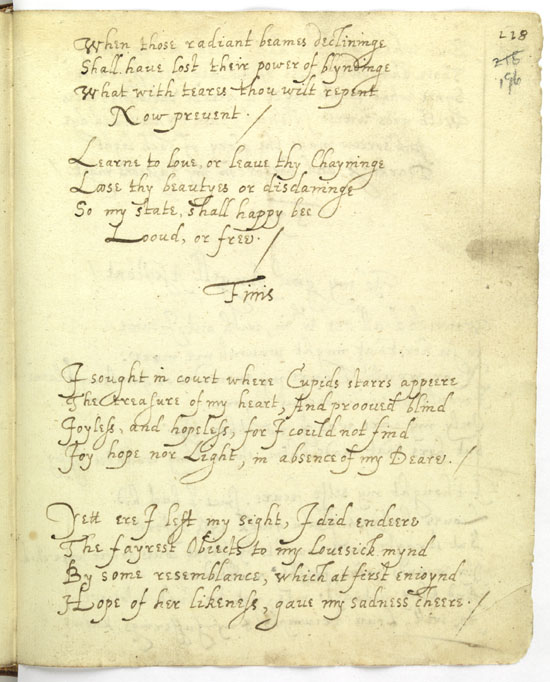 228
218
196
When those radiant beames declininge
Shall have lost their power of blyndinge
What with teares thou wilt repent
Now prevent. /
Learne to love, or leave thy Chayninge
Loose thy beautyes or disdaininge
So my state, shall happy bee
Looud, or free. /
Finis
I sought in court where Cupids starrs appeere
The treasure of my heart, And prooued blind
Joyless, and hopeless, for I could not find
Joy hope nor Light, in absence of my Deare. /
Yett ere I left my sight, I did endeere
The fayrest Obiects to my Lovesick mynd
By some resemblance, which at first enioynd
Hope of her likeness, gave my sadness cheere. /